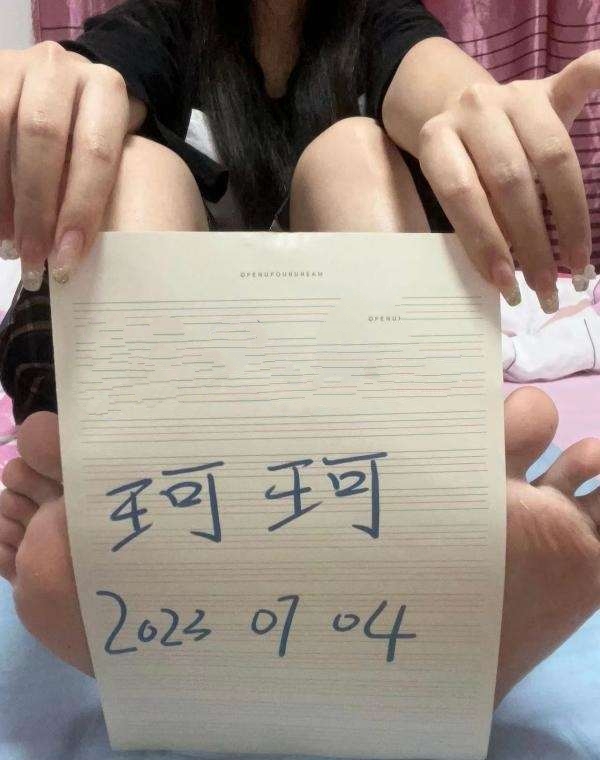 OPENUPOURDREAM
OPENUI
珂珂
2023 07 04